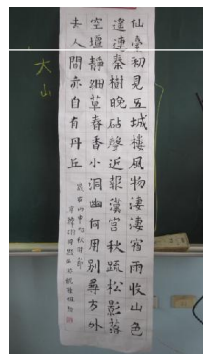 仙臺初見五城樓風物淒淒宿雨收山色
遙連秦樹晚砧聲近報漢宮秋疏松影落
空壇靜細草春香小洞幽何用別尋方外
去人間亦自有丹丘
大山